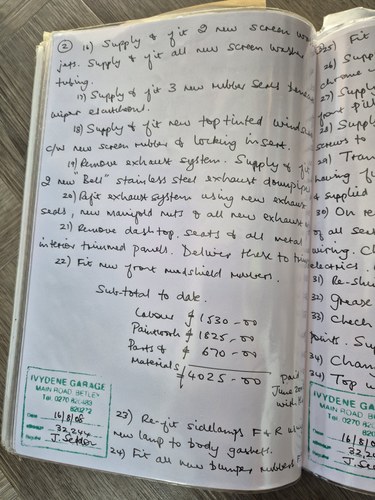 ② 16) Supply & fit 2 new screen
jets. Supply & fit all new screen washer
tubing.
17) Supply & fit 3 new rubber seals
wiper
18) Supply & fit new top tinted
c/w new screen rubber & locking insert.
19) Remove exhaust system. Supply & fit
2 new "Bell" stainless steel exhaust
20) Refit exhaust system using new exhaust
seals, new manifold nuts & all new exhaust
21) Remove dashtop, seats & all metal
interior trimmed panels. Deliver these to
22) Fit new front mudshield rubbers.
Sub-total to date.
Labour £ 1530-00
Paintwork £ 1825-00
Parts & £ 670-00
Materials
£4025-00
paid
June
with
IVYDENE GARAGE
MAIN ROAD, BETLEY
Tel. 0270 820483
820272
Date 16/8/06
32,244
J. Seddon
23) Re-fit sidelamps F & R using
new lamp to body gaskets.
24) Fit all new bumper rubbers F
25) Fit
26) Supp
chrome
27) Supply
front
28) Supply
screws to
29) Tran
having
& supplied
30) On re
of all sea
wiring. C
electrics.
31) Re-Shi
32) Grease
33) Check
points. Sup
34) Chan
34) Top
IVYDENE
MAIN ROAD
Tel. 0270
16/8/
32,24
J. Sed